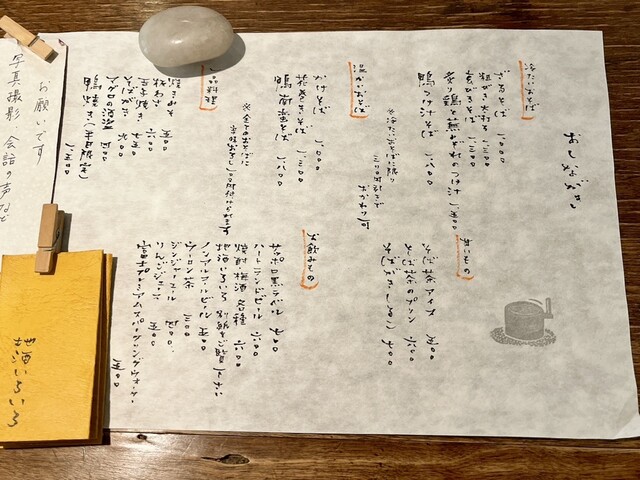 おしながき
冷たいおそば
ざるそば 一〇〇〇
粗びきせいろ 一三〇〇
玄びきそば 一三〇〇
炙り鶏と葱みぞれのつけ汁 一五〇〇
鴨つけ汁そば 一八〇〇
※冷たいおそばに限り
三〇〇円引きで
おかわり可
温かいおそば
かけそば 一〇〇〇
花巻きそば 一三〇〇
鴨南蛮そば 一八〇〇
※全てのおそばに
辛味おろし一〇〇円付けられます
一品料理
焼きみそ 五〇〇
板わさ 六〇〇
玉子焼き 七五〇
そばがき 九〇〇
鴨焼き(平日限定) 一五〇〇
甘いもの
そば茶アイス 五〇〇
そば茶のプリン 六〇〇
そばがきしるこ 七〇〇
お飲みもの
サッポロ黒ラベル 七〇〇
ハートランドビール 六〇〇
焼酎・梅酒 各種 六〇〇
地酒いろいろ 別紙ご覧下さい
ノンアルコールビール 五〇〇
ウーロン茶 三〇〇
ジンジャーエール 四〇〇
りんごジュース 五〇〇
富士プレミアムスパークリングウォーター 五〇〇
お願いです
写真撮影 会話の声など
地酒いろいろ